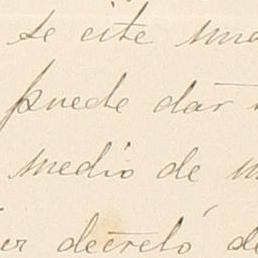 se cite
puede dar
medio de
decretó de